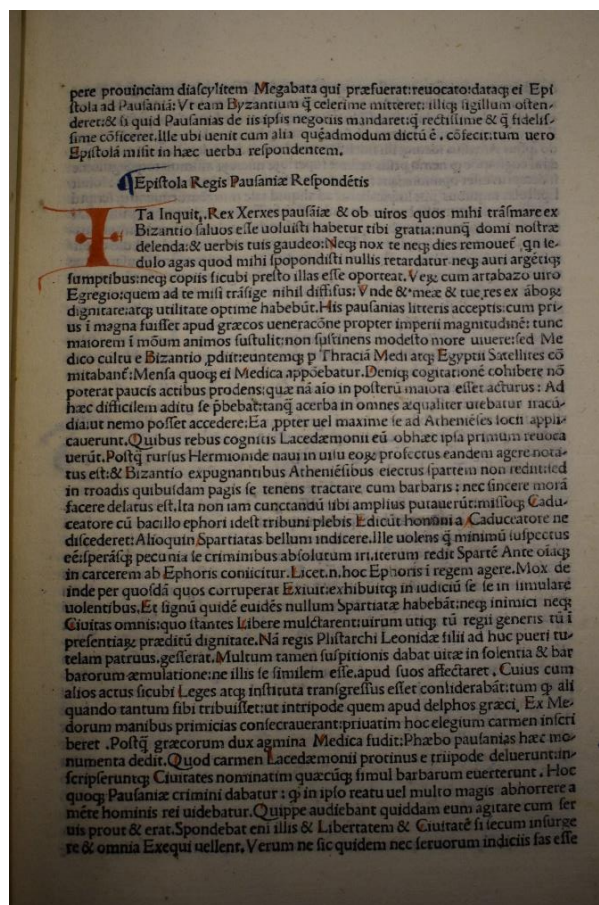 pere prouinciam diascylitem Megabata qui præfuerat:reuocato:dataq; ei Epi
stola ad Pausaniā: Vt eam Byzantium q̄ celerime mitteret: illiq; sigillum osten-
deret:& si quid Pausanias de iis ipsis negociis mandaret:q̄ rectissime & q̄ fidelis-
sime cōficeret.Ille ubi uenit cum alia quēadmodum dictū ē . cōfecit:tum uero
Epistolā misit in hæc uerba respondentem.
Epistola Regis Pausaniæ Respondētis
ITa Inquit,.Rex Xerxes pausāiæ & ob uiros quos mihi trāsmare ex
Bizantio saluos esse uoluisti habetur tibi gratia:nunq̄ domi nostræ
delenda:& uerbis tuis gaudeo:Neq; nox te neq; dies remouet ,qn se-
dulo agas quod mihi spopondisti nullis retardatur neq; auri argētiq;
sumptibus:neq; copiis sicubi presto illas esse oporteat. cum artabazo uiro
Egregio:quem ad te misi trāsige nihil diffisus: Vnde & meæ & tue res ex
dignitate:atq; utilitate optime habebūt.His pausanias litteris acceptis:cum pri-
us ī magna fuisset apud græcos ueneracōne propter imperii magnitudinē: tunc
maiorem ī mōum animos sustulit:non sustinens modesto more uiuere:sed Me
dico cultu e Bizantio ,pdiit:euntemq; p Thraciā Medi atq; Egyptii Satellites cō
mitabant̄:Mensa quoq; ei Medica appōebatur.Deniq; cogitationē cohibere nō
poterat paucis actibus prodens:quæ nā aīo in posterū maiora esset acturus : Ad
hæc difficilem aditu se p̄bebat:tanq̄ acerba in omnes æqualiter utebatur iracū-
dia:ut nemo posset accedere:Ea ,ppter uel maxime se ad Atheniēses socii appli-
cauerunt.Quibus rebus cognitis Lacedæmonii eū obhæc ipsa primum reuoca
uerūt.Postq̄ rursus Hermionide naui in uisu profectus eandem agere nota-
tus est:& Bizantio expugnantibus Atheniēsibus eiectus spartem non rediit:sed
in troadis quibusdam pagis se tenens tractare cum barbaris : nec sincere morā
facere delatus est.Ita non iam cunctandū sibi amplius putauerūt:missoq; Cadu-
ceatore cū bacillo ephori idest tribuni plebis Edicūt homini a Caduceatore ne
discederet:Alioquin Spartiatas bellum indicere.Ille uolens q̄ minimū suspectus
eē:sperāsq; pecunia se criminibus absolutum iri.iterum redit Spartē Ante
in carcerem ab Ephoris coniicitur.Licet.n.hoc Ephoris ī regem agere.Mox de
inde per quosdā quos corruperat Exiuit:exhibuitq; in iudiciū se se in simulare
uolentibus.Et signū quidē euidēs nullum Spartiatæ habebāt:neq; inimici neq;
Ciuitas omnis:quo stantes Libere mulctarent:uirum utiq; tū regii generis tū ī
presentia præditū dignitate.Nā regis Plistarchi Leonidæ filii ad huc pueri tu-
telam patruus.gesserat.Multum tamen suspitionis dabat uitæ in solentia & bar
barorum æmulatione:ne illis se similem esse.apud suos affectaret . Cuius cum
alios actus sicubi Leges atq; instituta transgressus esset considerabāt:tum q̧ ali
quando tantum sibi tribuisset:ut intripode quem apud delphos græci, Ex Me-
dorum manibus primicias consecrauerant:priuatim hoc elegium carmen inscri
beret .Postq̄ græcorum dux agmina Medica fudit:Phæbo pausanias hæc mo-
numenta dedit.Quod carmen Lacedæmonii protinus e triipode deluerunt:in-
scripseruntq; Ciuitates nominatim quæcūq; simul barbarum euerterunt . Hoc
quoq; Pausaniæ crimini dabatur : q̧ in ipso reatu uel multo magis abhorrere a
mēte hominis rei uidebatur.Quippe audiebant quiddam eum agitare cum ser
uis prout & erat.Spondebat eni illis & Libertatem & Ciuitatē si secum insurge
re & omnia Exequi uellent. Verum ne sic quidem nec seruorum indiciis fas esse